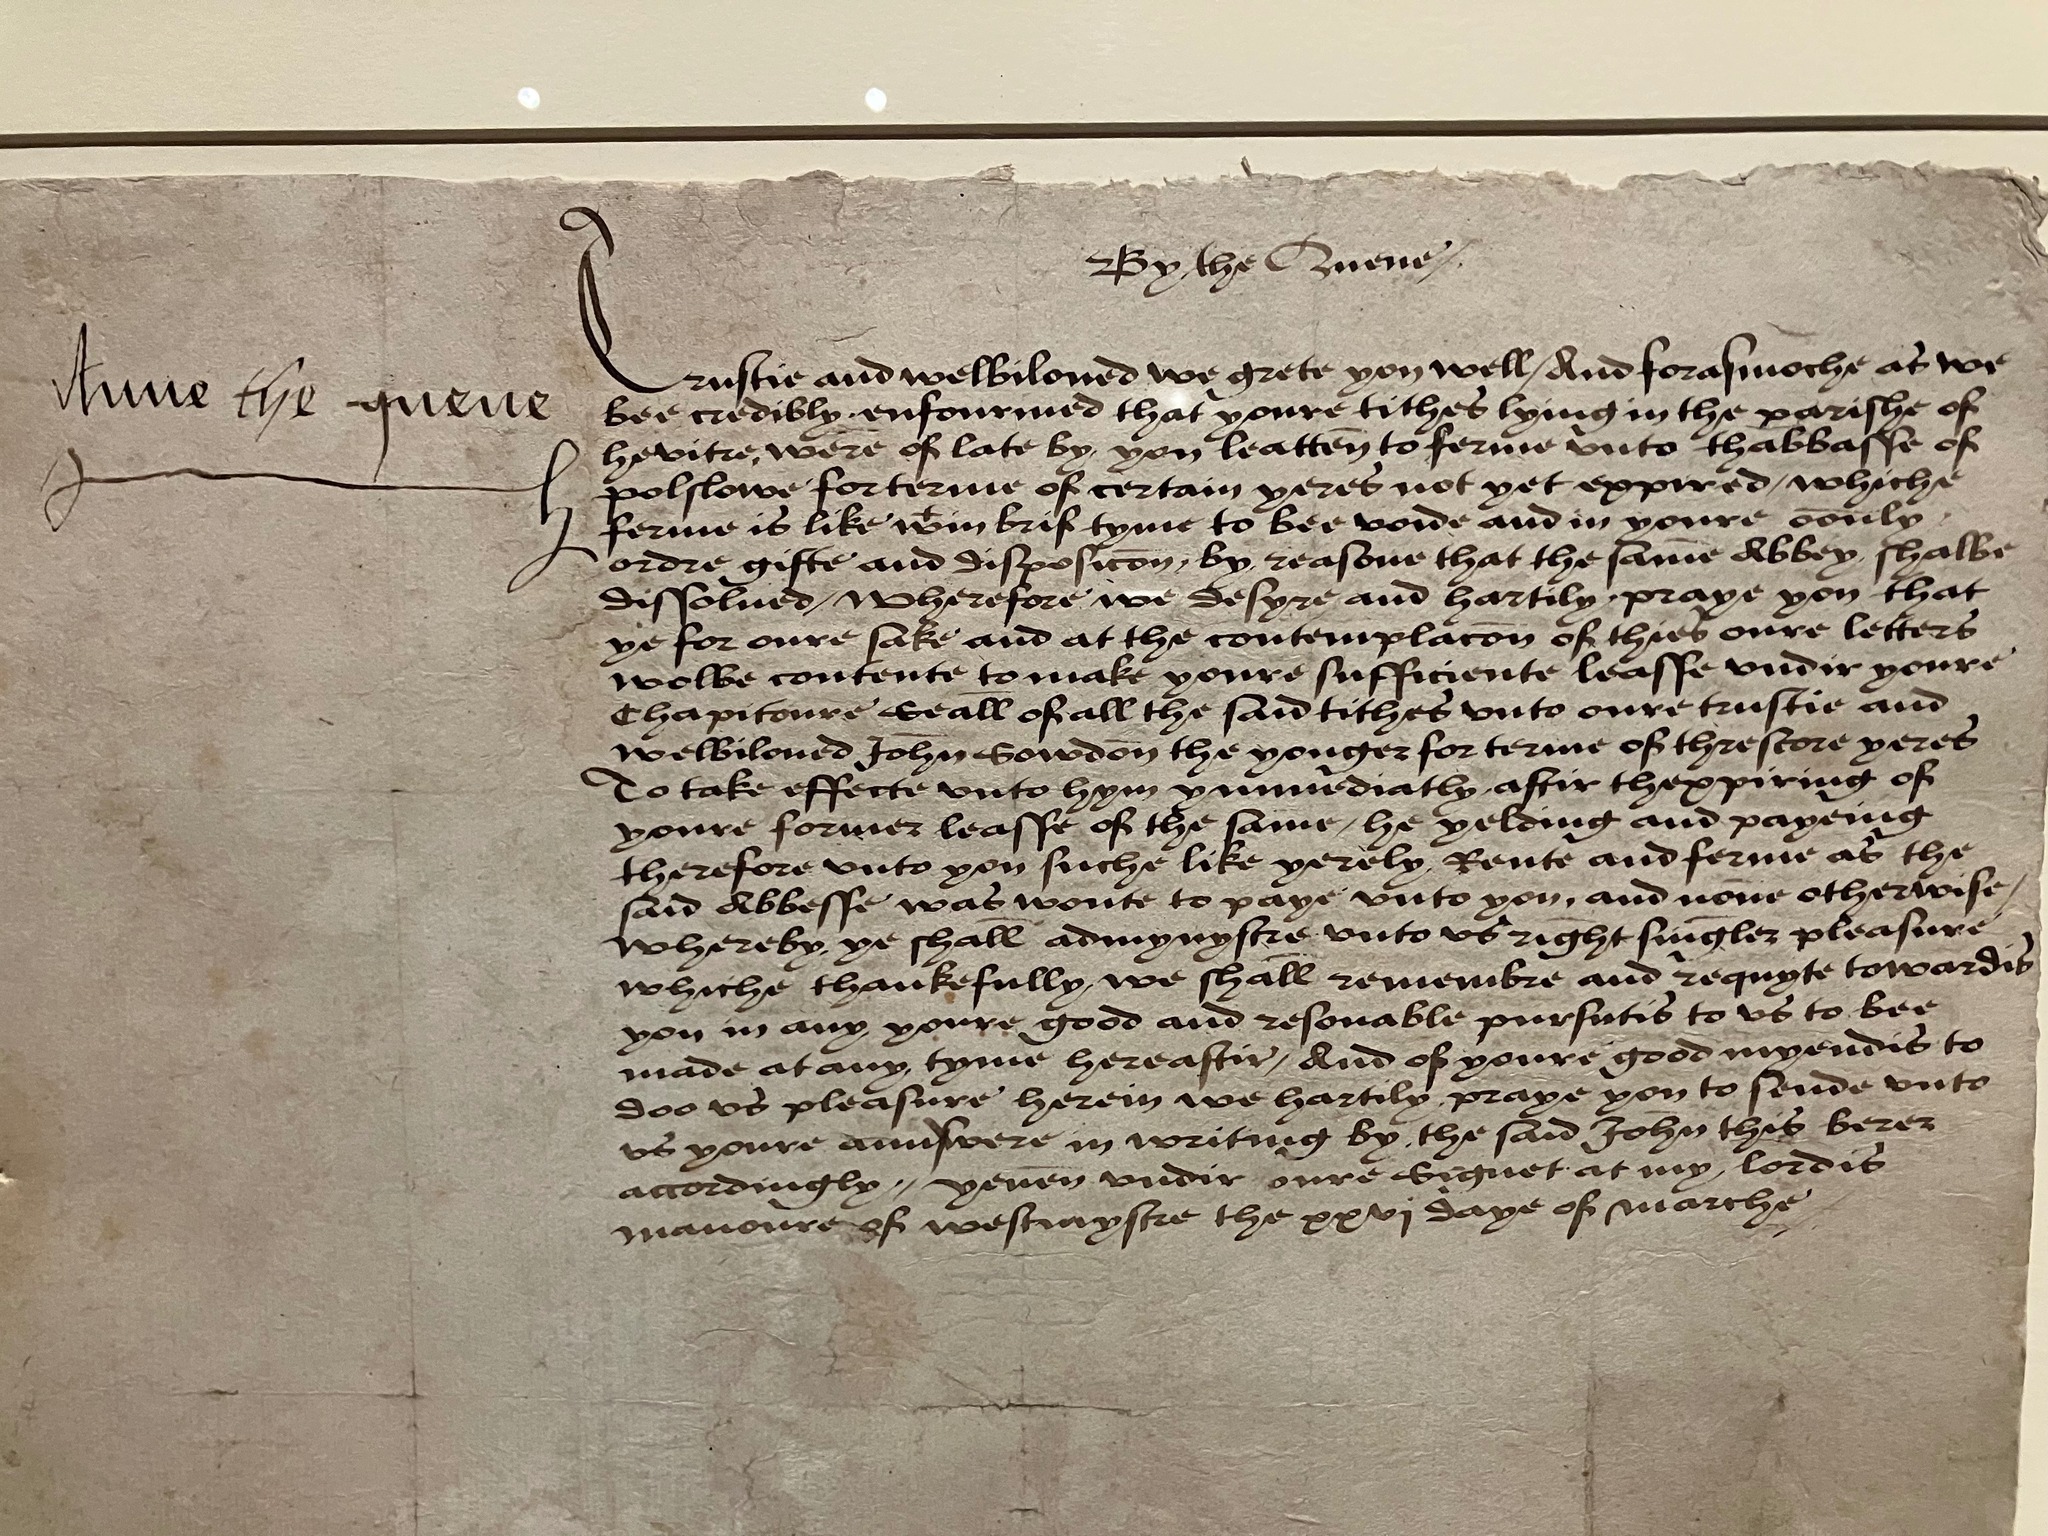 By the Quene
Anne the quene
Trustie and welbiloued we grete you well / And forasmoche as we
bee credibly enfourmed that youre tithes lying in the parishe of
hevitre, were of late by you leatten to ferme vnto thabbasse of
polslowe for terme of certain yeres not yet expired / whiche
ferme is like wtin brif tyme to bee voide and in youre oonly
ordre gifte and disposicon, by reasone that the same Abbey shalbe
dissolued / Wherefore we desyre and hartily praye you that
ye for oure sake and at the contemplacon of thies oure letters
wolbe contente to make youre sufficiente leasse vndir youre
Chapitoure Seall of all the said tithes vnto oure trustie and
welbiloued John Sowdon the yonger for terme of threscore yeres
To take effecte vnto hym ymmediatly aftir thexpiring of
youre former leasse of the same / he yelding and payeing
therefore vnto you suche like yerely Rente and ferme as the
said Abbesse was wonte to paye vnto you, and none otherwise /
Whereby ye shall admynystre vnto vs right singler pleasure
whiche thankefully we shall remembre and requyte towardis
you in any youre good and resonable pursutis to vs to bee
made at any tyme hereaftir / And of youre good myendis to
doo vs pleasure herein we hartily praye you to sende vnto
vs youre aunswere in writing by the said John this berer
accordingly // yeuen vndir oure Signet at my lordis
manoure of westmystre the xxvj daye of Marche